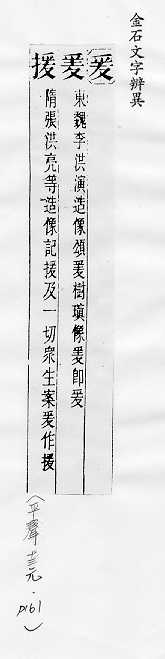 金石文字辨異
爰
爰 東魏李洪演造像頌爰樹瑱像爰即爰
援 隋張洪亮等造像記援及一切衆生案爰作援
(平聲 十三元. p161)